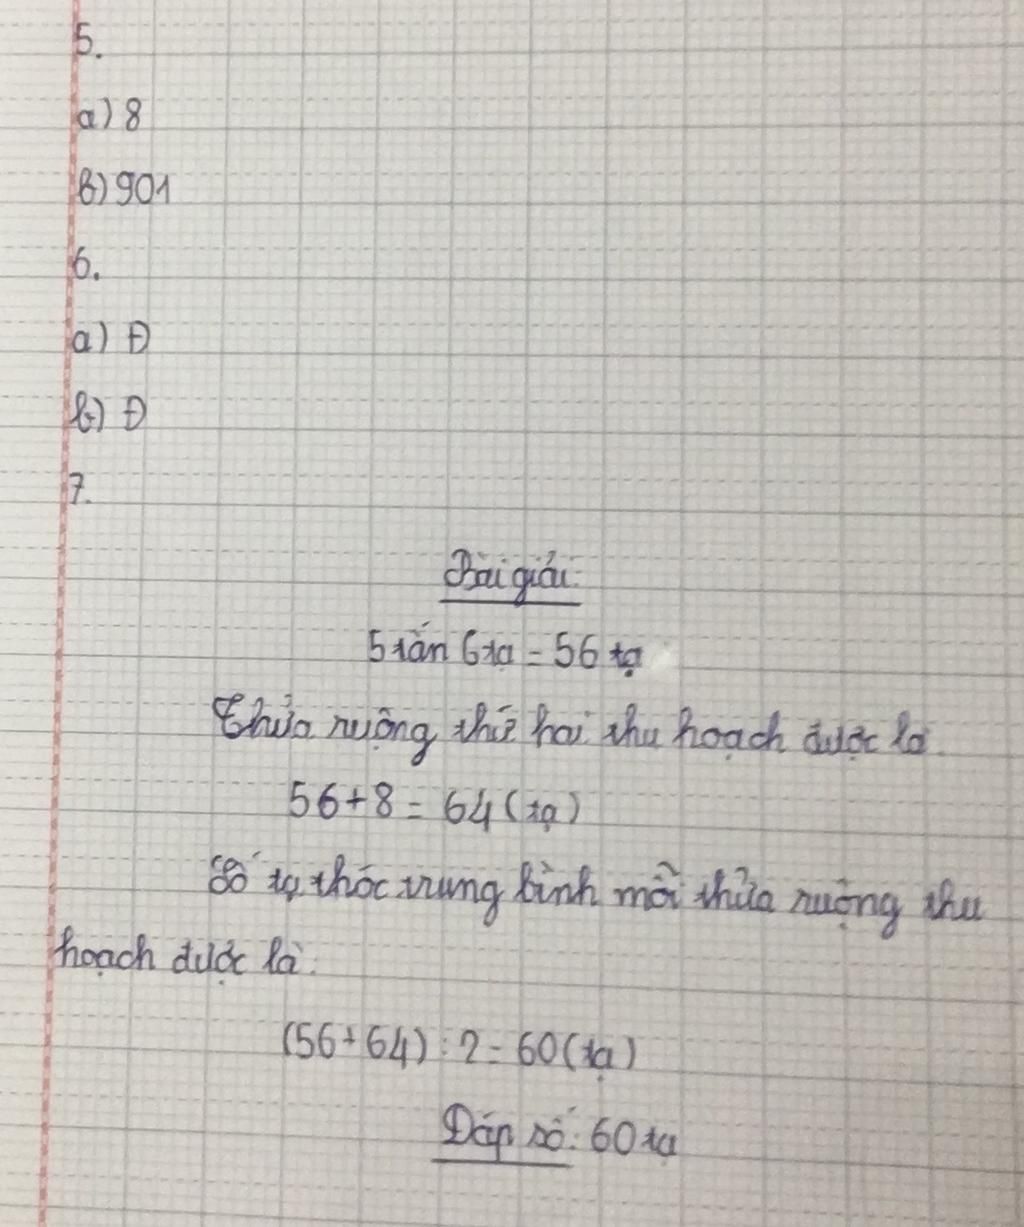 5.
a) 8
b) 901
6.
a) Đ
b) Đ
7.
Bài giải:
5 tấn 6 tạ = 56 tạ
Thửa ruộng thứ hai thu hoạch được là
56 + 8 = 64 (tạ)
Số tạ thóc trung bình mỗi thửa ruộng thu
hoạch được là:
(56 + 64) : 2 = 60 (tạ)
Đáp số: 60 tạ